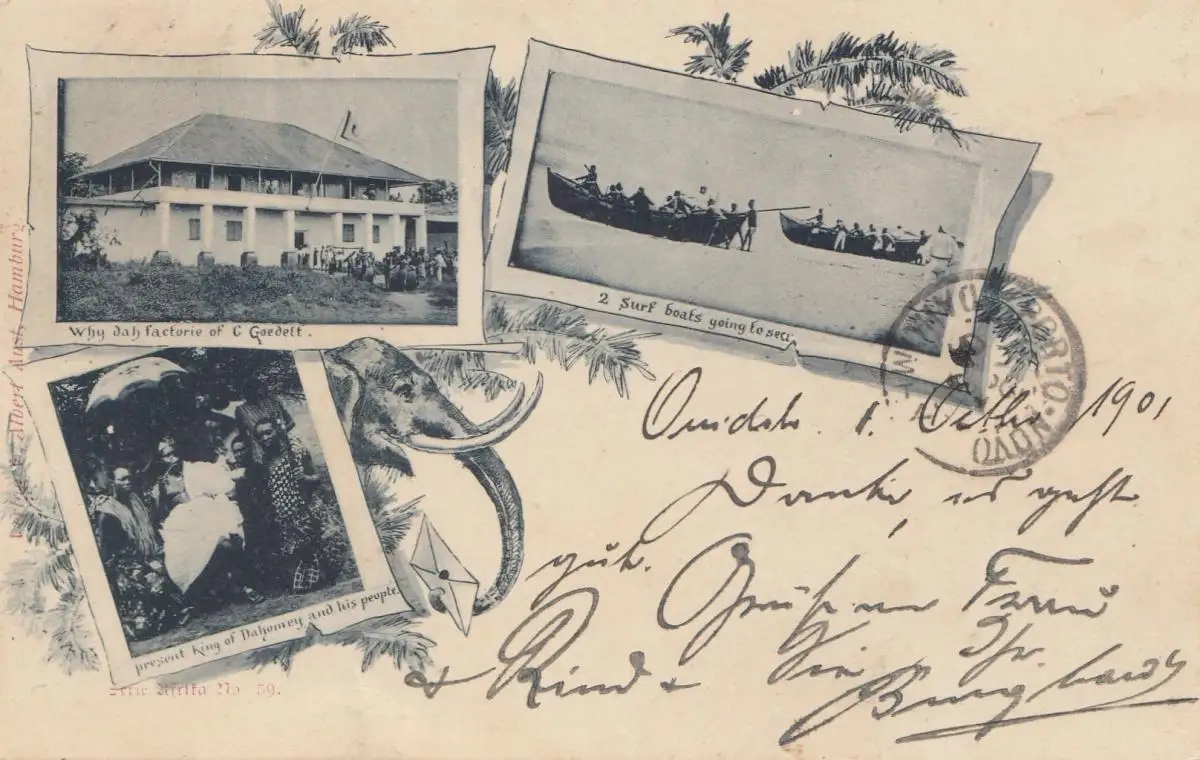 Why dah factorie of C Goedelt.
2 Surf boats going to sea.
present King of Dahomey and his people.
Albert Aust, Hamburg
Serie Afrika No 59.
PORTO-NOVO
Ouidah. 1. Octbr 1901
Danke, es geht
gut. Grüße an Frau
& Kind + Sie Ihr.
Burghardt